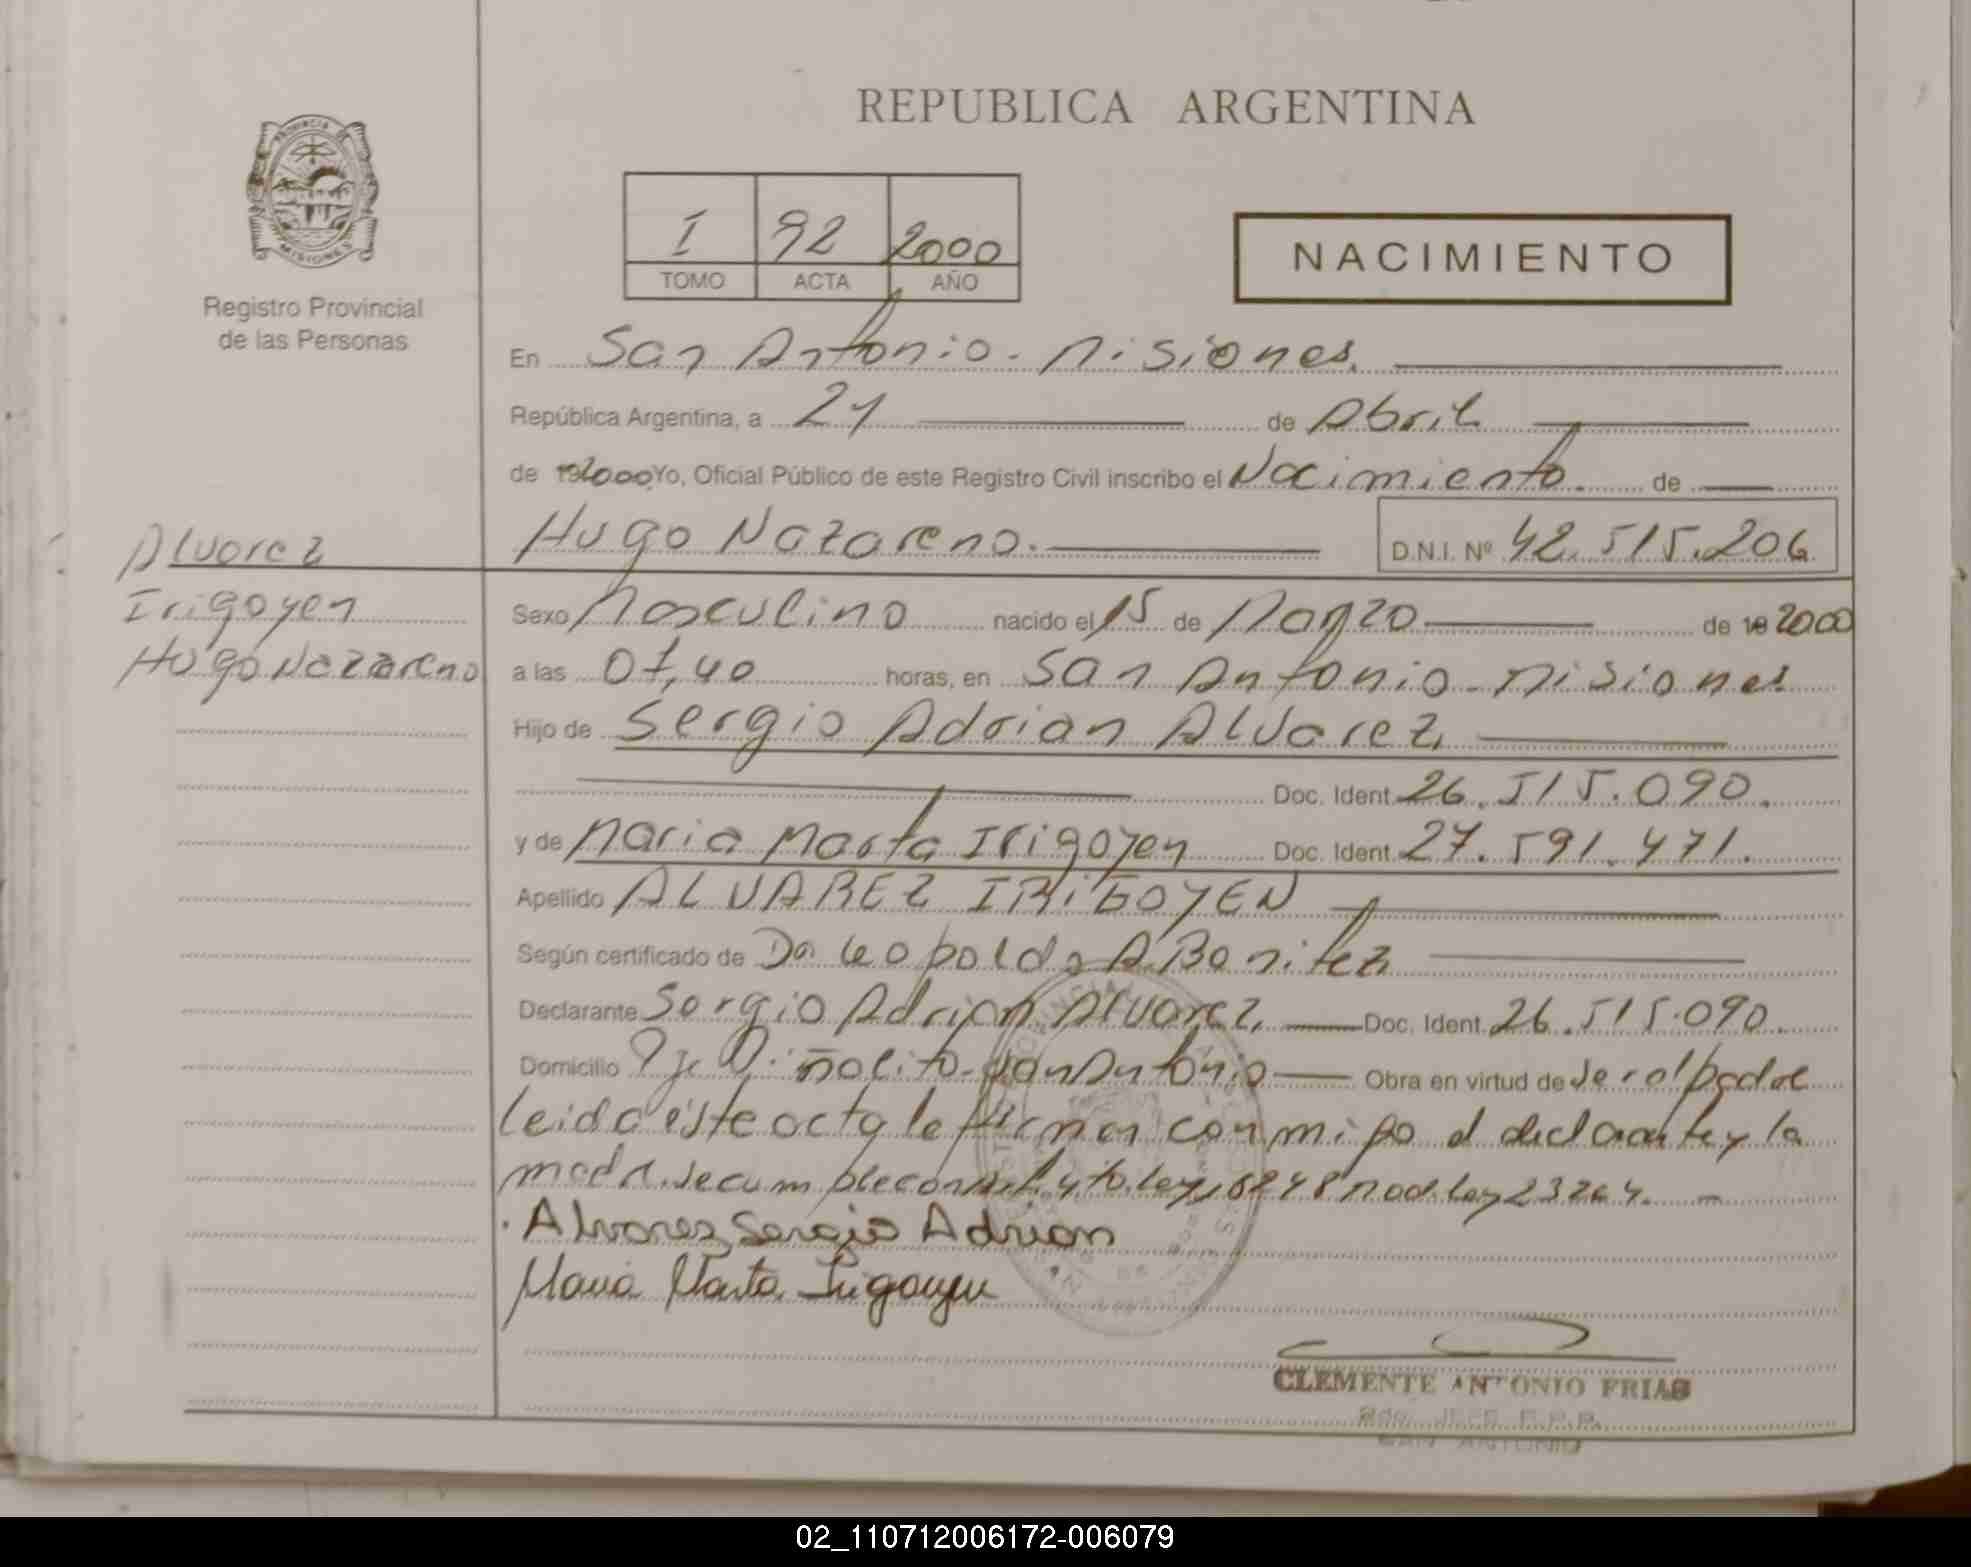 REPUBLICA ARGENTINA
PROVINCIA DE MISIONES
Registro Provincial
de las Personas
I 92 2000
TOMO ACTA AÑO
NACIMIENTO
En San Antonio - Misiones.
República Argentina, a 24 de Abril
de 2000 Yo, Oficial Público de este Registro Civil inscribo el Nacimiento. de
Hugo Nazareno. D.N.I. Nº 42.515.206
Alvarez
Irigoyen
Hugo Nazareno
Sexo Masculino nacido el 15 de Marzo de 2000
a las 07,40 horas, en San Antonio - Misiones
Hijo de Sergio Adrian Alvarez
Doc. Ident. 26.515.090.
y de Maria Marta Irigoyen Doc. Ident. 27.591.471.
Apellido ALVAREZ IRIGOYEN
Según certificado de Dr. Leopoldo A Benitez
Declarante Sergio Adrian Alvarez Doc. Ident. 26.515.090.
Domicilio San Antonio Obra en virtud de ser el padre
Leida este acta le firman con migo el declarante y la
madre. Se cumple con ley 18248 mod. Ley 23264.
Alvarez Sergio Adrian
Maria Marta Irigoyen
CLEMENTE ANTONIO FRIAS
JEFE
SAN ANTONIO
02_110712006172-006079